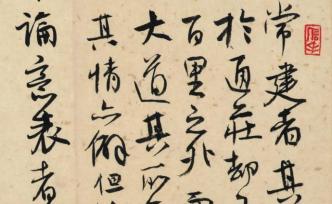 常建者其
於通莊却
百里之外
大道其所
其情亦僻但
論意表者